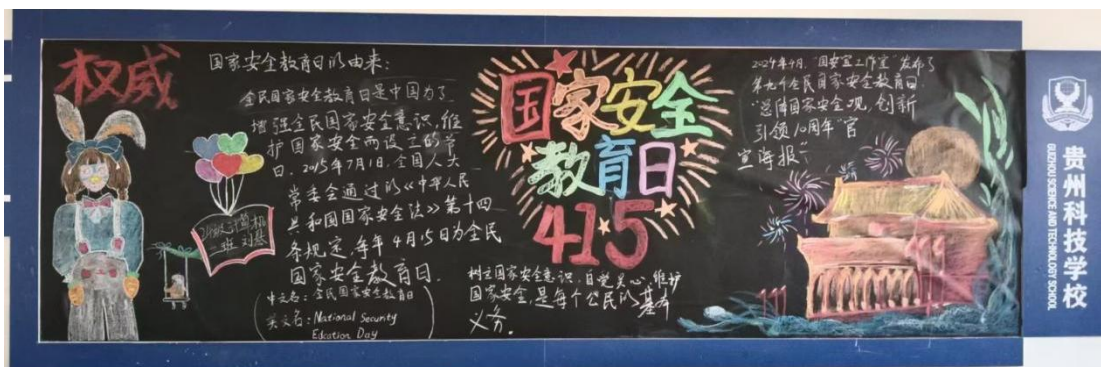 权威
国家安全教育日的由来:
全民国家安全教育日是中国为了
增强全民国家安全意识,维
护国家安全而设立的节
日。2015年7月1日,全国人大
常委会通过的《中华人民
共和国国家安全法》第十四
条规定,每年4月15日为全民
国家安全教育日.
中文名:全民国家安全教育日
英文名:National Security
Edcation Day
二班
国家安全
教育日
415
树立国家安全意识,自觉关心、维护
国家安全,是每个公民的基本
义务.
2024年4月,"国安宣工作室"发布了
第九个全民国家安全教育日
"总体国家安全观,创新
引领10周年"官
宣海报"
贵州科技学校
GUIZHOU SCIENCE AND TECHNOLOGY SCHOOL